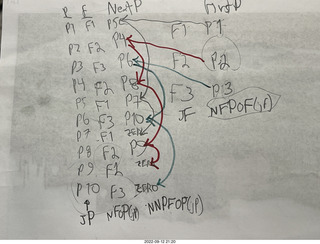 P F NextP FirstP
P1 F1 P5 F1 P1
P2 F2 P4 F2 P2
P3 F3 P6 F3 P3
P4 F2 P8
P5 F1 P7
P6 F3 P10
P7 F1
P8 F2 P9
P9 F2
P10 F3 ZERO
JF NFPOF(JF)
JP NFOP(JP) NNPFOP(JP)
2022-09-12 21:20